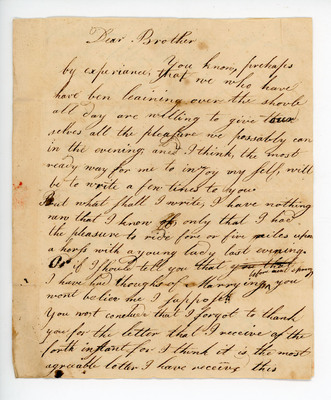 Dear Brother
You know, prehaps
by experiance, that we who have
have ben leaining over the shovle
all day are willing to give our
selves all the pleasure we possably can
in the evening; and I think, the most
ready way for me to injoy my self, will
be to write a few lines to you.
But what shall I write, I have nothing
new that I know of, only that I had
the pleasure to ride fore or five miles upon
a horse with a young lady last evening.
Or if I should tell you that
I have had thoughs of Marrying you
wont believe me I suppose.
You wont conclude that I forgot to thank
you for the letter that I receive of the
forth instant for I think it is the most
agreeable letter I have receive this